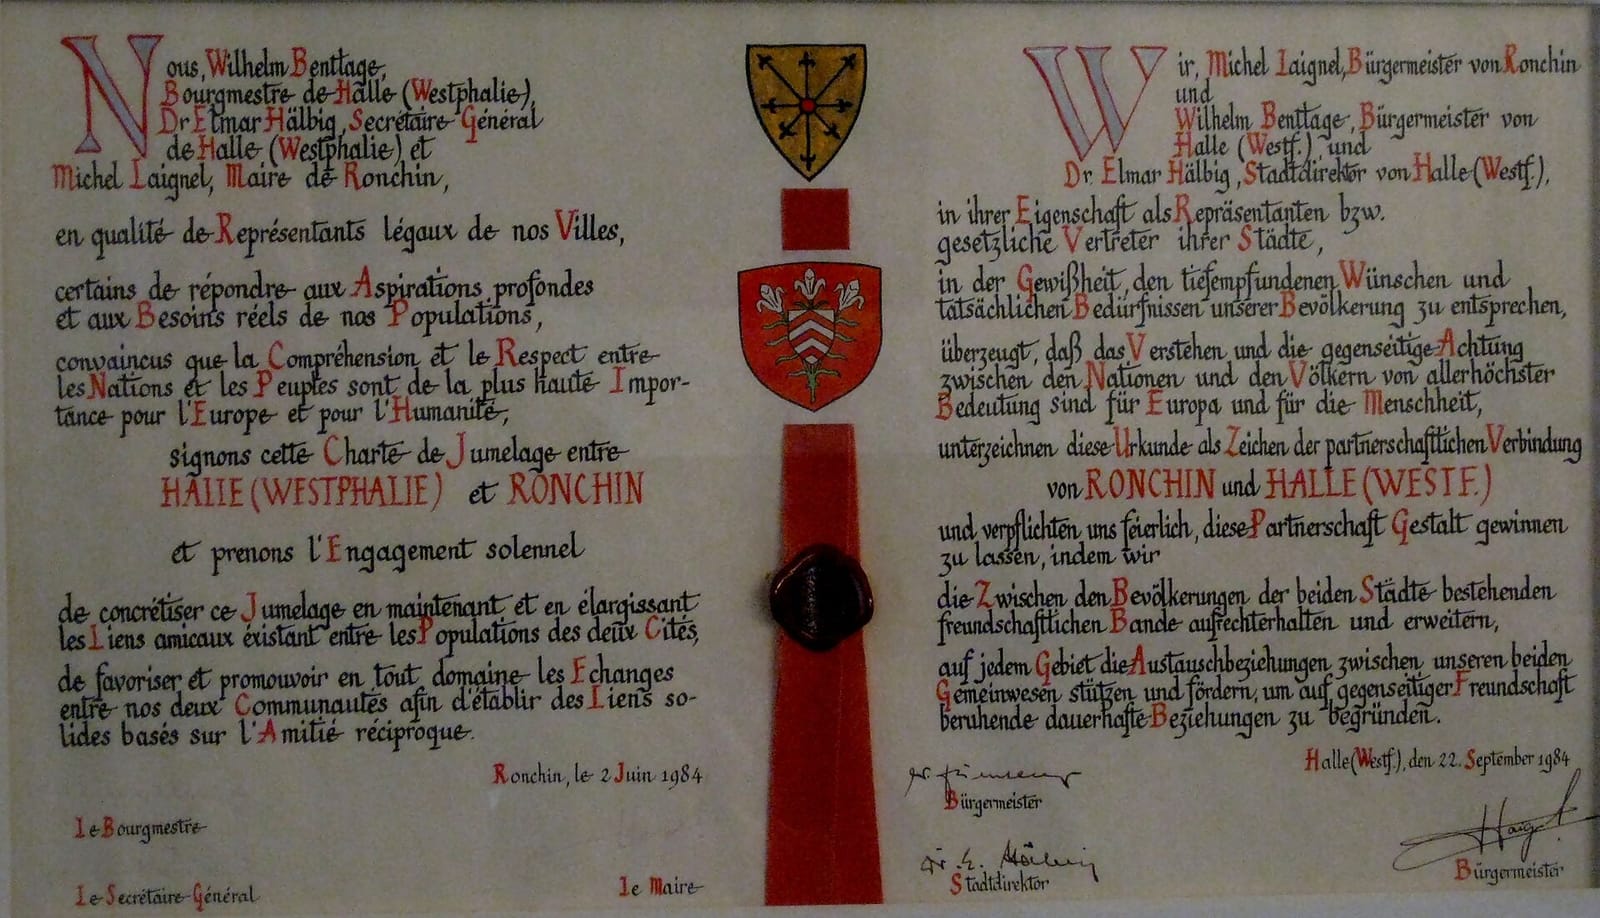 Nous, Wilhelm Benttage,
Bourgmestre de Halle (Westphalie),
Dr Elmar Hälbig, Secrétaire Général
de Halle (Westphalie) et
Michel Laignel, Maire de Ronchin,
en qualité de Représentants légaux de nos Villes,
certains de répondre aux Aspirations profondes
et aux Besoins réels de nos Populations,
convaincus que la Compréhension et le Respect entre
les Nations et les Peuples sont de la plus haute Impor-
tance pour l'Europe et pour l'Humanité,
signons cette Charte de Jumelage entre
HALLE (WESTPHALIE) et RONCHIN
et prenons l'Engagement solennel
de concrétiser ce Jumelage en maintenant et en élargissant
les Liens amicaux éxistant entre les Populations des deux Cités,
de favoriser et promouvoir en tout domaine les Echanges
entre nos deux Communautés afin d'établir des Liens so-
lides basés sur l'Amitié réciproque.
Ronchin, le 2 Juin 1984
Le Bourgmestre
Le Secrétaire Général
Le Maire
Wir, Michel Laignel, Bürgermeister von Ronchin
und
Wilhelm Benttage, Bürgermeister von
Halle (Westf.) und
Dr. Elmar Hälbig, Stadtdirektor von Halle (Westf.),
in ihrer Eigenschaft als Repräsentanten bzw.
gesetzliche Vertreter ihrer Städte,
in der Gewißheit, den tiefempfundenen Wünschen und
tatsächlichen Bedürfnissen unserer Bevölkerung zu entsprechen,
überzeugt, daß das Verstehen und die gegenseitige Achtung
zwischen den Nationen und den Völkern von allerhöchster
Bedeutung sind für Europa und für die Menschheit,
unterzeichnen diese Urkunde als Zeichen der partnerschaftlichen Verbindung
von RONCHIN und HALLE (WESTF.)
und verpflichten uns feierlich, diese Partnerschaft Gestalt gewinnen
zu lassen, indem wir
die Zwischen den Bevölkerungen der beiden Städte bestehenden
freundschaftlichen Bande aufrechterhalten und erweitern,
auf jedem Gebiet die Austauschbeziehungen zwischen unseren beiden
Gemeinwesen stützen und fördern, um auf gegenseitiger Freundschaft
beruhende dauerhafte Beziehungen zu begründen.
Halle (Westf.), den 22. September 1984
Bürgermeister
Dr. E. Hälbig
Stadtdirektor
Bürgermeister